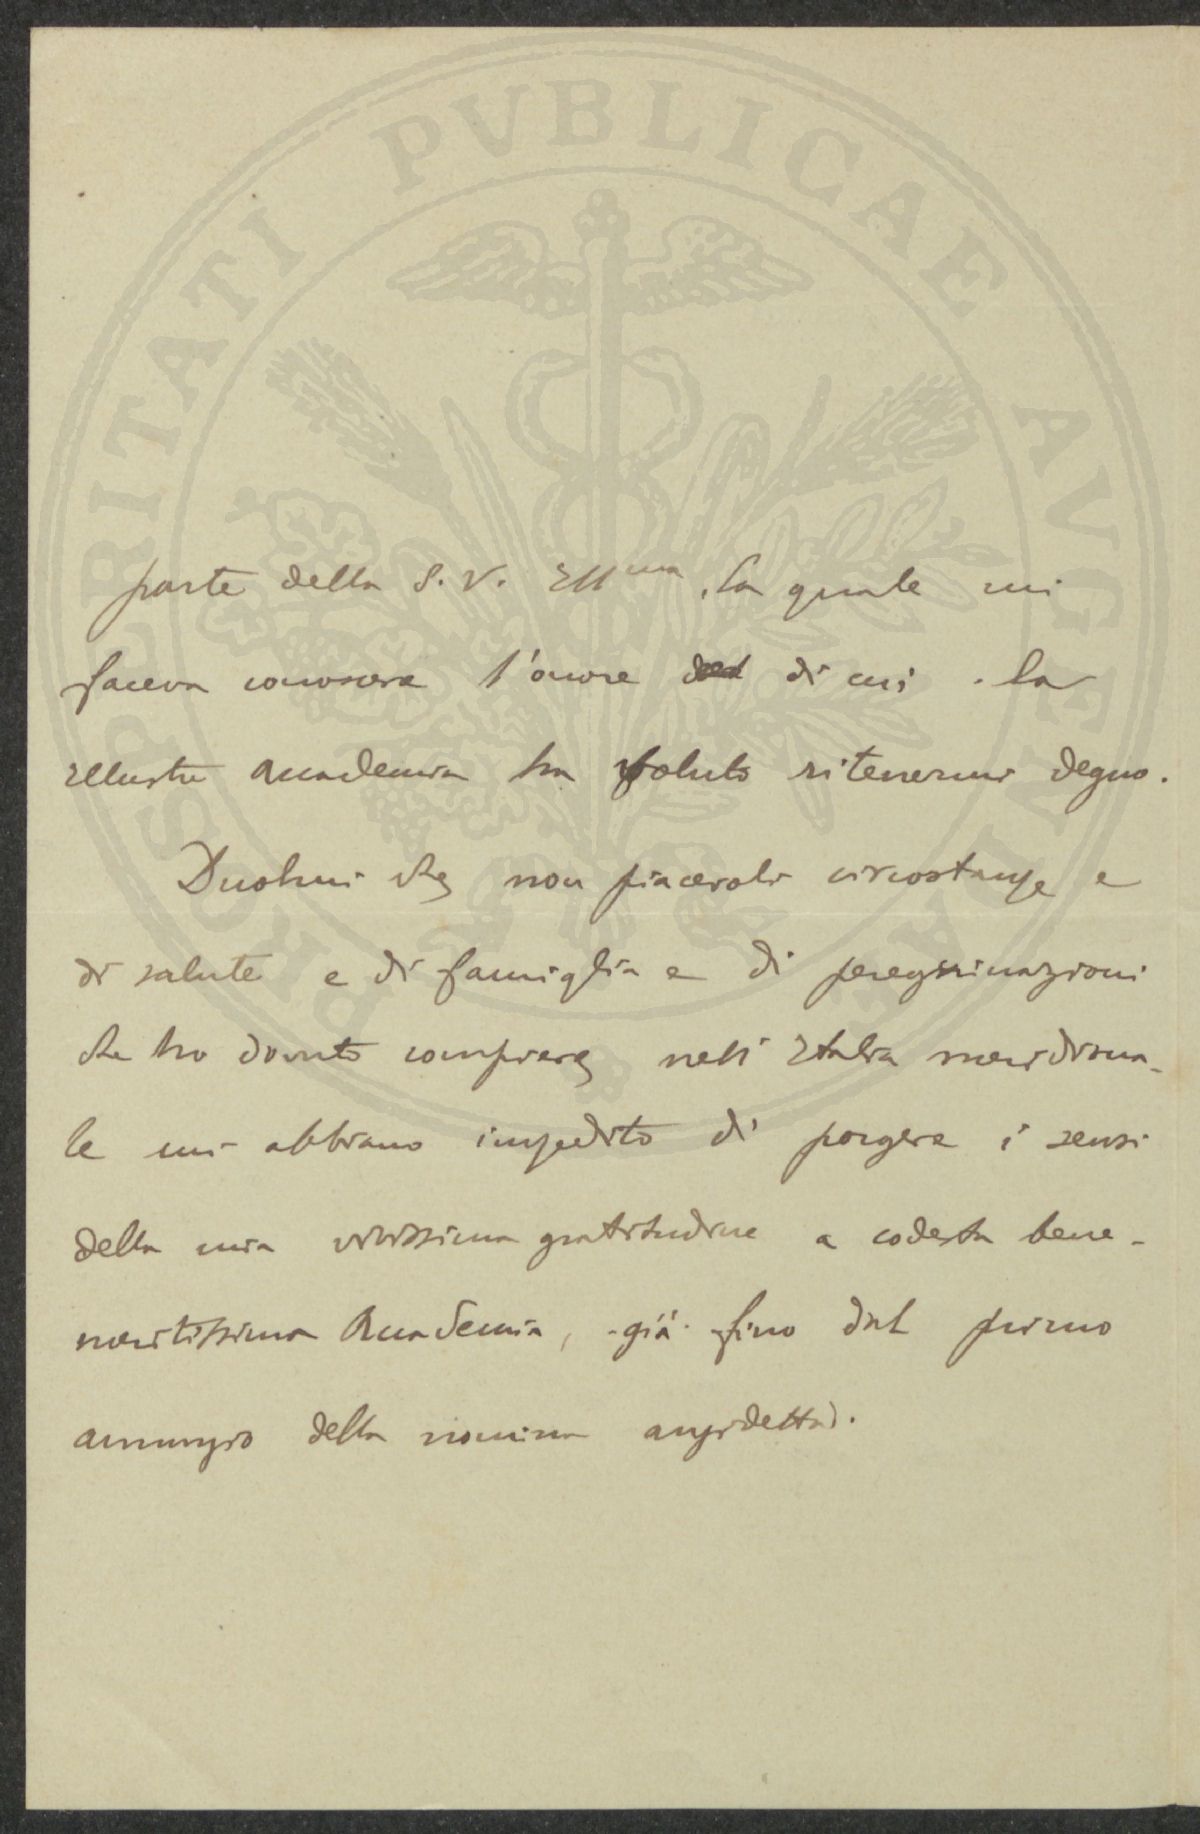 PROSPERITATI PVBLICAE AVGENDAE
parte della S. V. Ill^ma, la quale mi
faceva conoscere l'onore di cui la
illustre Accademia ha voluto ritenermi degno.
Duolmi che non piacevoli circostanze e
di salute e di famiglia e di peregrinazioni
che ho dovuto compiere nell' Italia meridiona-
le mi abbiano impedito di porgere i sensi
della mia vivissima gratitudine a codesta bene-
meritissima Accademia, già fino dal primo
annunzio della nomina anzidetta.